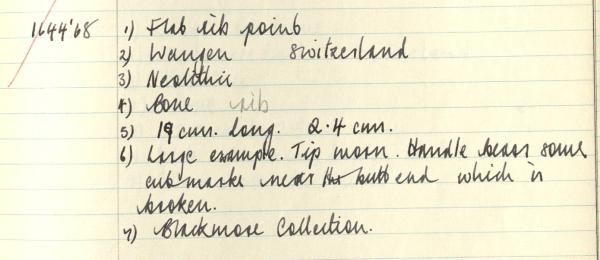 1644'68 1) Flat rib point
2) Wangen Switzerland
3) Neolithic
4) Bone rib
5) 19 cm. long. 2.4 cm.
6) Large example. Tip worn. Handle bears some
cut marks near the butt end which is
broken.
7) Blackmore Collection.